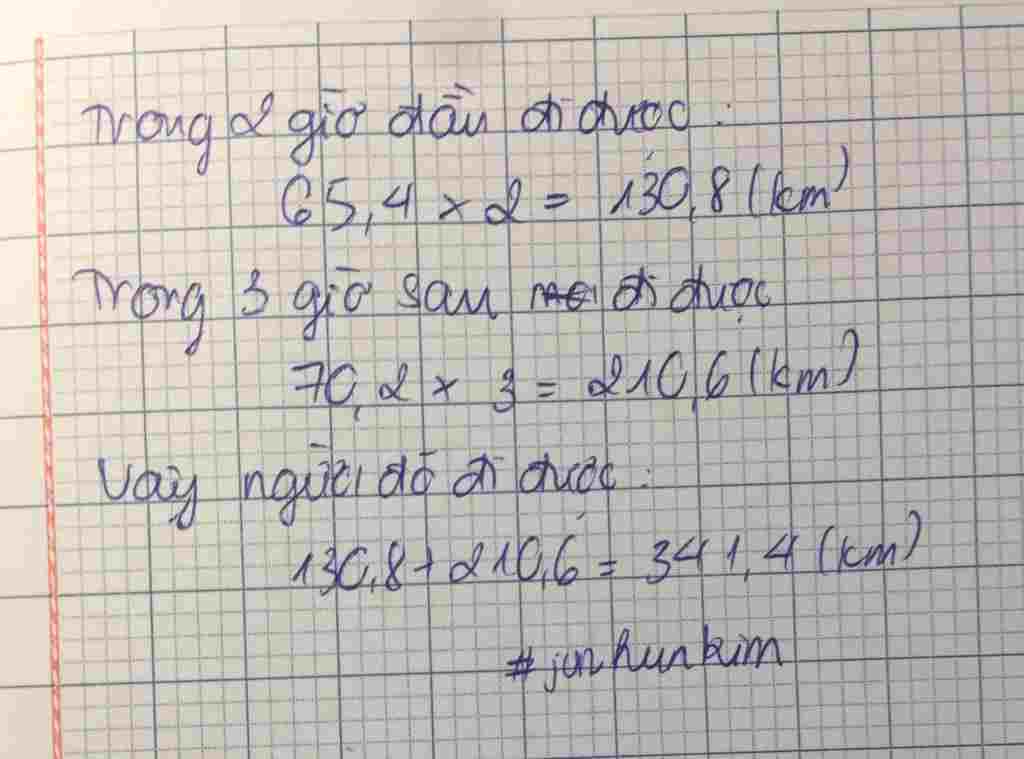 Trong 2 giờ đầu đi được:
65,4 x 2 = 130,8 (km)
Trong 3 giờ sau đi được
70,2 x 3 = 210,6 (km)
Vậy người đó đi được:
130,8 + 210,6 = 341,4 (km)
#junhunkim